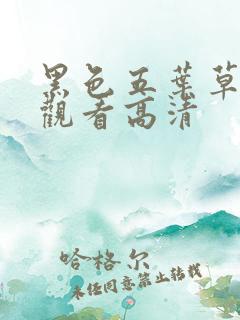 黑色五葉草
觀看高清
哈格尔
未经同意禁止转载